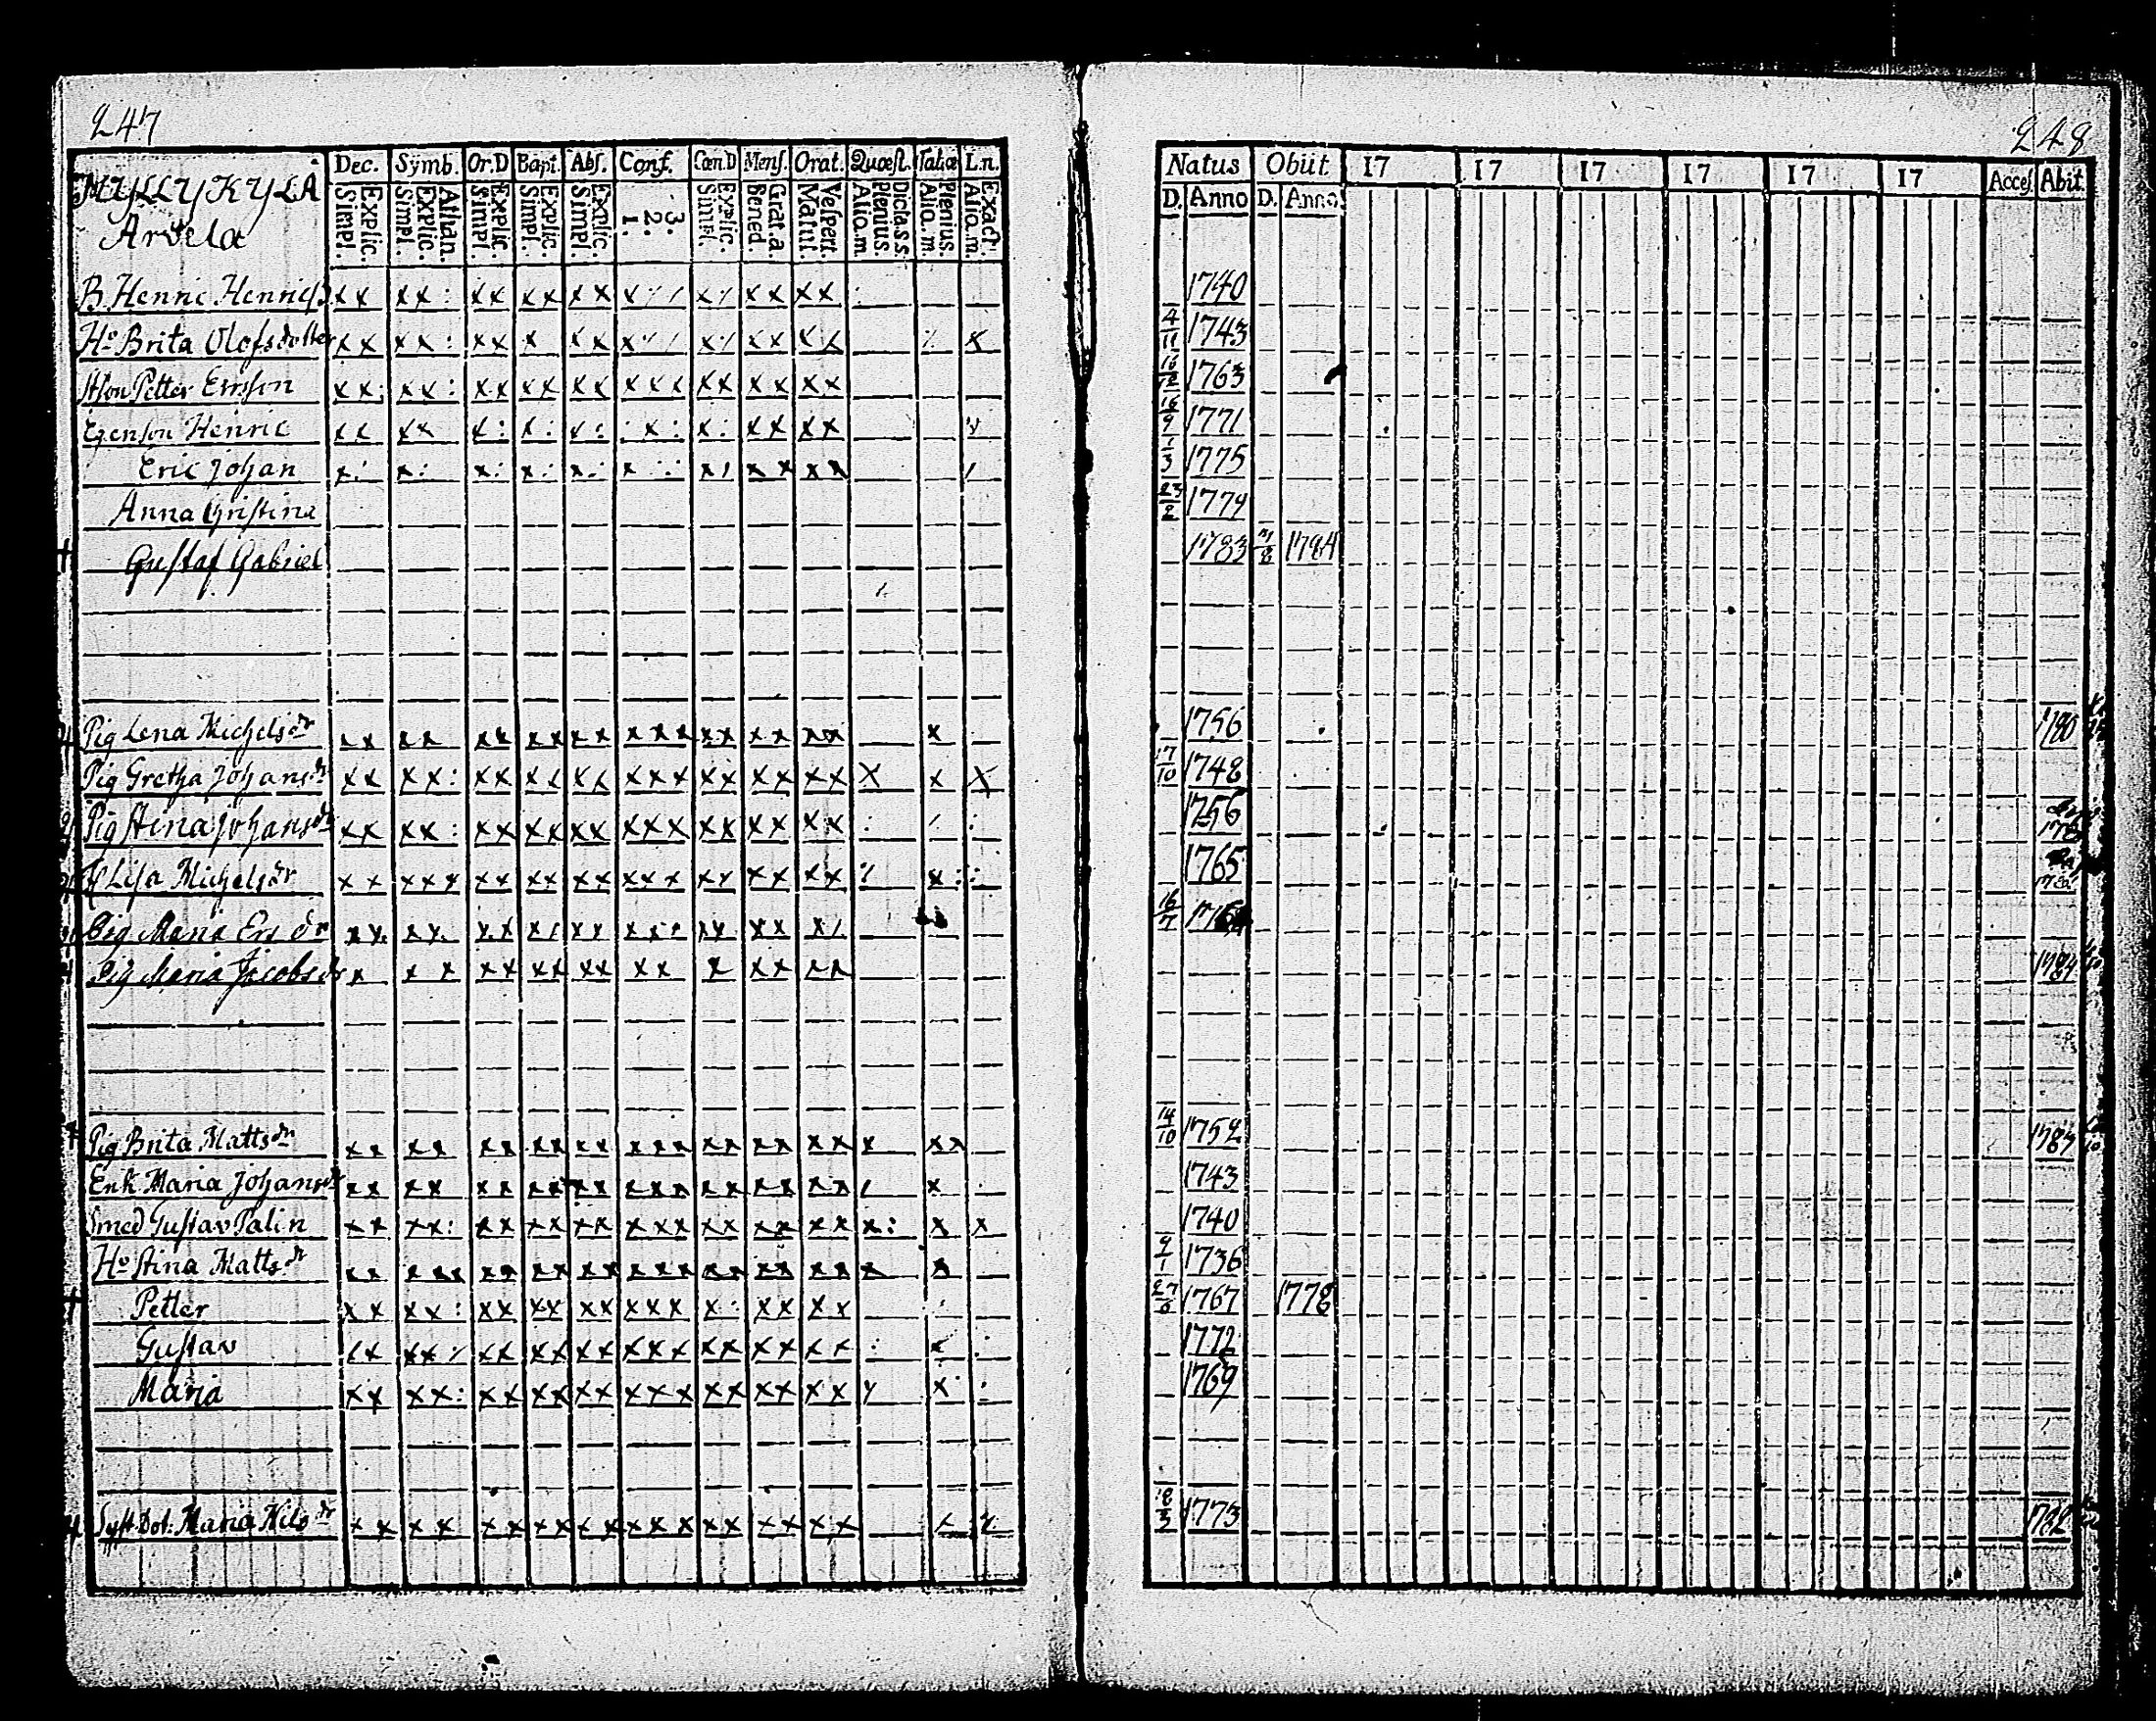 247
MYLLYKYLÄ Dec. Symb. Or.D Bapt. Abs. Conf. Cœn.D Mens. Orat. Quæst. Tabla L.n.
Arvela Simpl. Explic. Simpl. Explic. Athan. Simpl. Explic. Simpl. Explic. Simpl. Explic. 1. 2. 3. Simpl. Explic. Bened. Grat.a. Matut. Vespert. Alio.m. Plenius. Dicta.s.s. Alio.m. Plenius. Alio.m. Exact.
B. Henric Henricss x x x x : x x x x x x x x x x x x x
Ho Brita Olofsdotter x x x x : x x x x x x x x x x x
Petter Ersson x x x x : x x x x x x x x x x x x x x x x
Egenson Henric x x x x x : x : x : x : x : x x x x
Eric Johan x : x : x : x : x : x x x x x x
Anna Christina
Gustaf Gabriel
Pig Lena Michelsdr x x x x x x x x x x x x x x x x x x x x
Pig Gretha Johansdr x x x x : x x x x x x x x x x x x x x x x x x
Pig Stina Johansdr x x x x : x x x x x x x x x x x x x x x
Lisa Michelsdr x x x x x x x x x x x x x x x x x x x x x
Pig Maria Ersdr x x x x x x x x x x x x x x x x x x
Pig Maria Jacobsdr x x x x x x x x x x x x x x x x
Pig Brita Mattsdr x x x x x x x x x x x x x x x x x x x x x x
Enk. Maria Johansdr x x x x x x x x x x x x x x x x x x x x
Smed Gustav Palin x x x x : x x x x x x x x x x x x x x x x : x x
Ho Stina Mattsdr x x x x x x x x x x x x x x x x x x x x x x
Petter x x x x : x x x x x x x x x x : x x x x
Gustav x x x x x x x x x x x x x x x x x x x : x
Maria x x x x : x x x x x x x x x x x x x x x x
Syst. Dot. Maria Nilsdr x x x x x x x x x x x x x x x x x x x
248
Natus Obiit 17 17 17 17 17 17 Acces. Abit
D. Anno D. Anno
1740
4/11 1743
16/12 1763
16/9 1771
1/3 1775
23/2 1779
1783 1784
1756 1780
17/10 1748
1756
1765
16/7
1784
14/10 1752 1787
1743
1740
9/1 1736
27/6 1767 1778
1772
1769
18/3 1773 1782